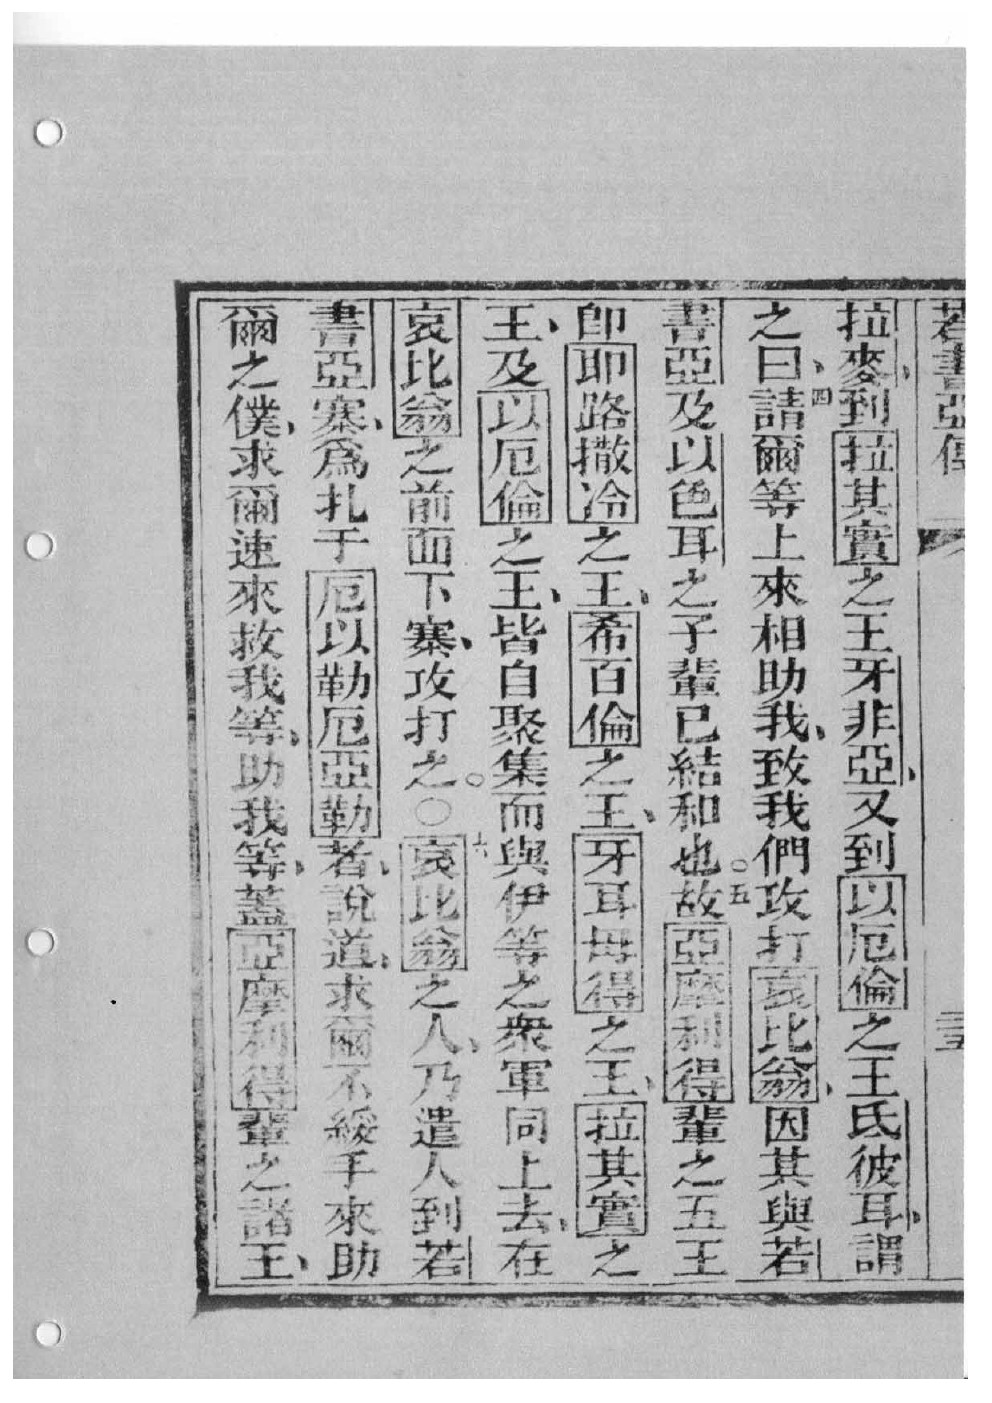 若書亞傳 二五
拉麥、到拉其實之王牙非亞、又到以厄倫之王氐彼耳、謂
之曰、四請爾等上來相助我、致我們攻打哀比翁、因其與若
書亞及以色耳之子輩已結和也。五故亞摩利得輩之五王
卽耶路撒冷之王、希百倫之王、牙耳毋得之王、拉其實之
王、及以厄倫之王、皆自聚集而與伊等之衆軍同上去、在
哀比翁之前面下寨、攻打之。○六哀比翁之人、乃遣人到若
書亞寨、爲扎于厄以勒厄亞勒者、說道、求爾不綏手來助
爾之僕、求爾速來救我等、助我等、蓋亞摩利得輩之諸王、